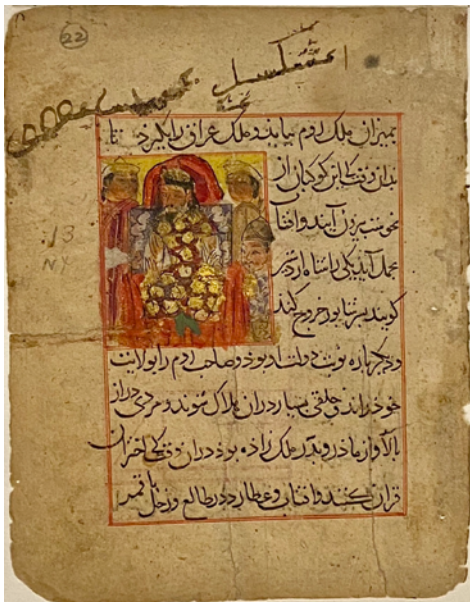 22
بمیزان ملک روم بیاید و ملک عراق را بگیرد تا
بدان وقت کی این کوکبان از
نحوست بیرون آیند و افتاب
بحمل آید یکی را شاه اردشیر
کویند بر شابور خروج کند
13
NY
و دیکرباره نوبت دولت او بوذ و صاحب روم را بولایت
خوذ راند و خلقی بسیار دران هلاک شوند و مردی دراز
بالا از ماذر و پدر ملک زاده بوذ دران وقت کی اختران
قران کنند و افتاب و عطارد در طالع و زحل با قمر